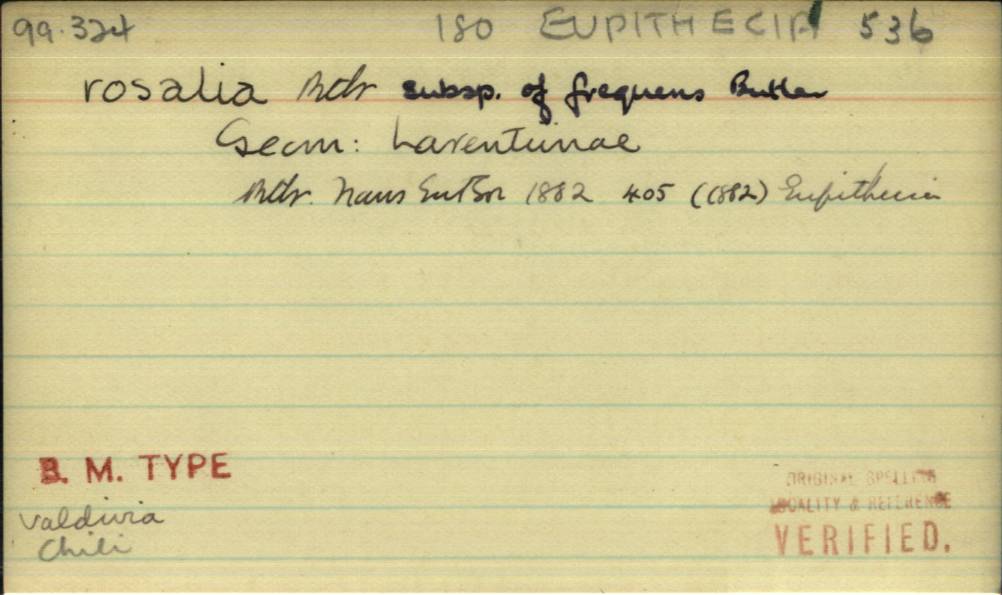 99.324 180 EUPITHECIA 536
rosalia Btlr subsp. of frequens Butler
Geom: Larentiinae
Btlr. Trans Ent Soc 1882 405 (1882) Eupithecia
B. M. TYPE
ORIGINAL SPELLING
Valdivia
LOCALITY & REFERENCE
Chili
VERIFIED.